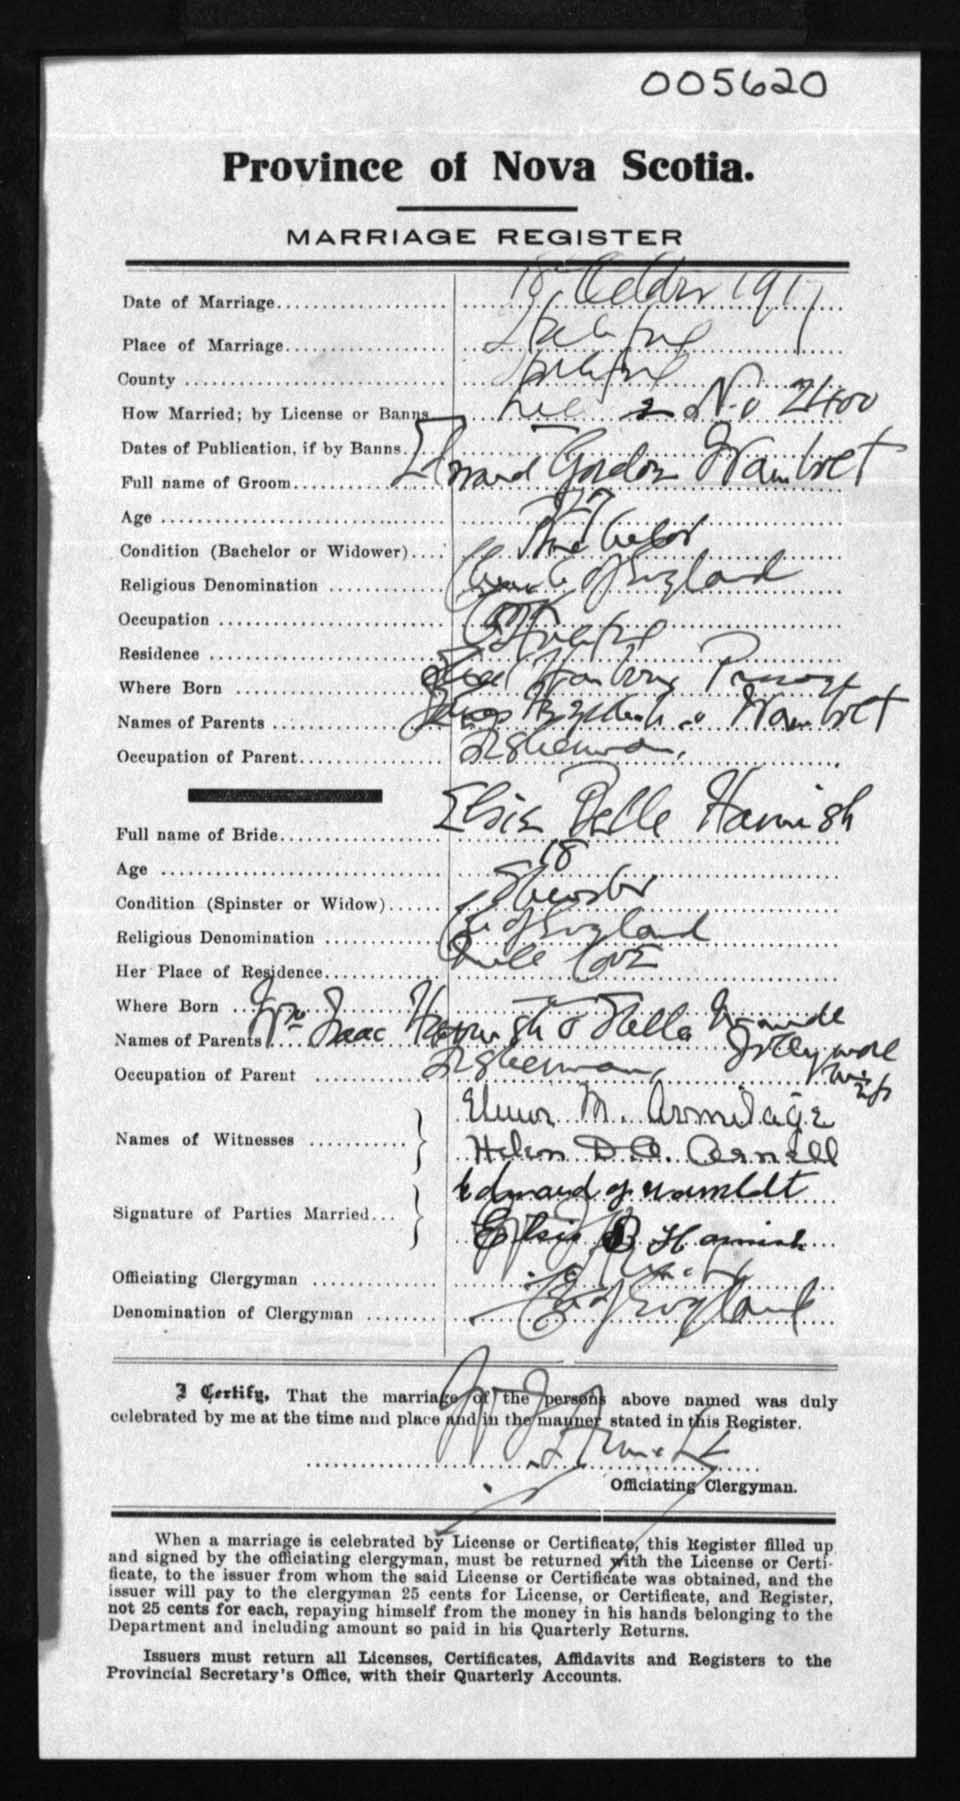 005620
Province of Nova Scotia.
MARRIAGE REGISTER
Date of Marriage 18 October 1917
Place of Marriage Halifax
County Halifax
How Married; by License or Banns No 2400
Dates of Publication, if by Banns
Full name of Groom Edward Gordon Wambolt
Age 27
Condition (Bachelor or Widower) Bachelor
Religious Denomination Church of England
Occupation
Residence Halifax
Where Born Head Harbour Passage
Names of Parents Wambolt
Occupation of Parent Fisherman,
Full name of Bride Elsie Belle Harnish
Age 18
Condition (Spinster or Widow) Spinster
Religious Denomination Ch of England
Her Place of Residence Mill Cove
Where Born
Names of Parents Wm Isaac Harnish & Stella
Jollymore
Occupation of Parent Fisherman,
Names of Witnesses M. Armitage
Helen D. Arnell
Signature of Parties Married Edward G Wambolt
Elsie B Harnish
Officiating Clergyman
Denomination of Clergyman Ch of England
I Certify, That the marriage of the persons above named was duly
celebrated by me at the time and place and in the manner stated in this Register.
Officiating Clergyman.
When a marriage is celebrated by License or Certificate, this Register filled up
and signed by the officiating clergyman, must be returned with the License or Certi-
ficate, to the issuer from whom the said License or Certificate was obtained, and the
issuer will pay to the clergyman 25 cents for License, or Certificate, and Register,
not 25 cents for each, repaying himself from the money in his hands belonging to the
Department and including amount so paid in his Quarterly Returns.
Issuers must return all Licenses, Certificates, Affidavits and Registers to the
Provincial Secretary's Office, with their Quarterly Accounts.